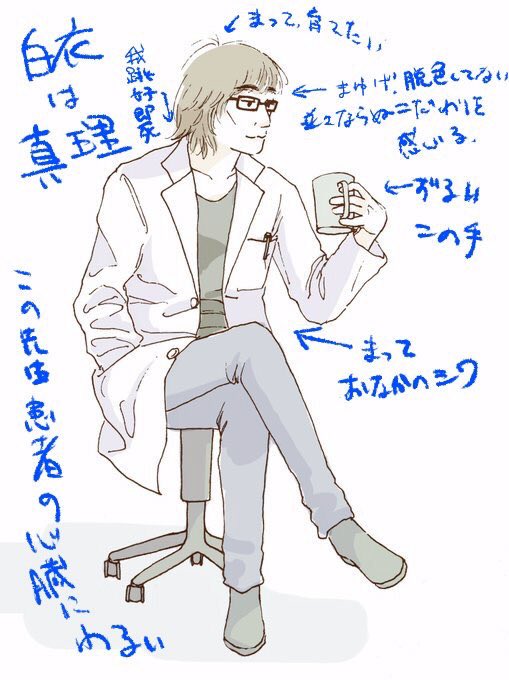 白衣
は
真理
まって、育てたい
まゆげ!脱色してない
並々ならぬこだわりを
感じる。
ずるい
この手
まって
おなかのシワ
この先生患者の心臓に
わるい